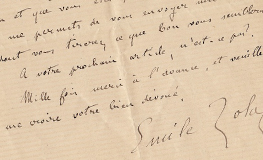 et que vous
me permets de vous envoyer
dont vous tirerez ce que bon vous semblera
A votre prochain article, n'est-ce pas?
Mille fois merci à l'avance, et veuillez
me croire votre bien dévoué.
Emile Zola